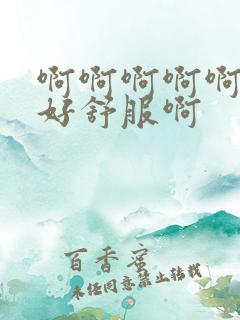 啊啊啊啊啊
好舒服啊
百香蜜
未经同意禁止转载